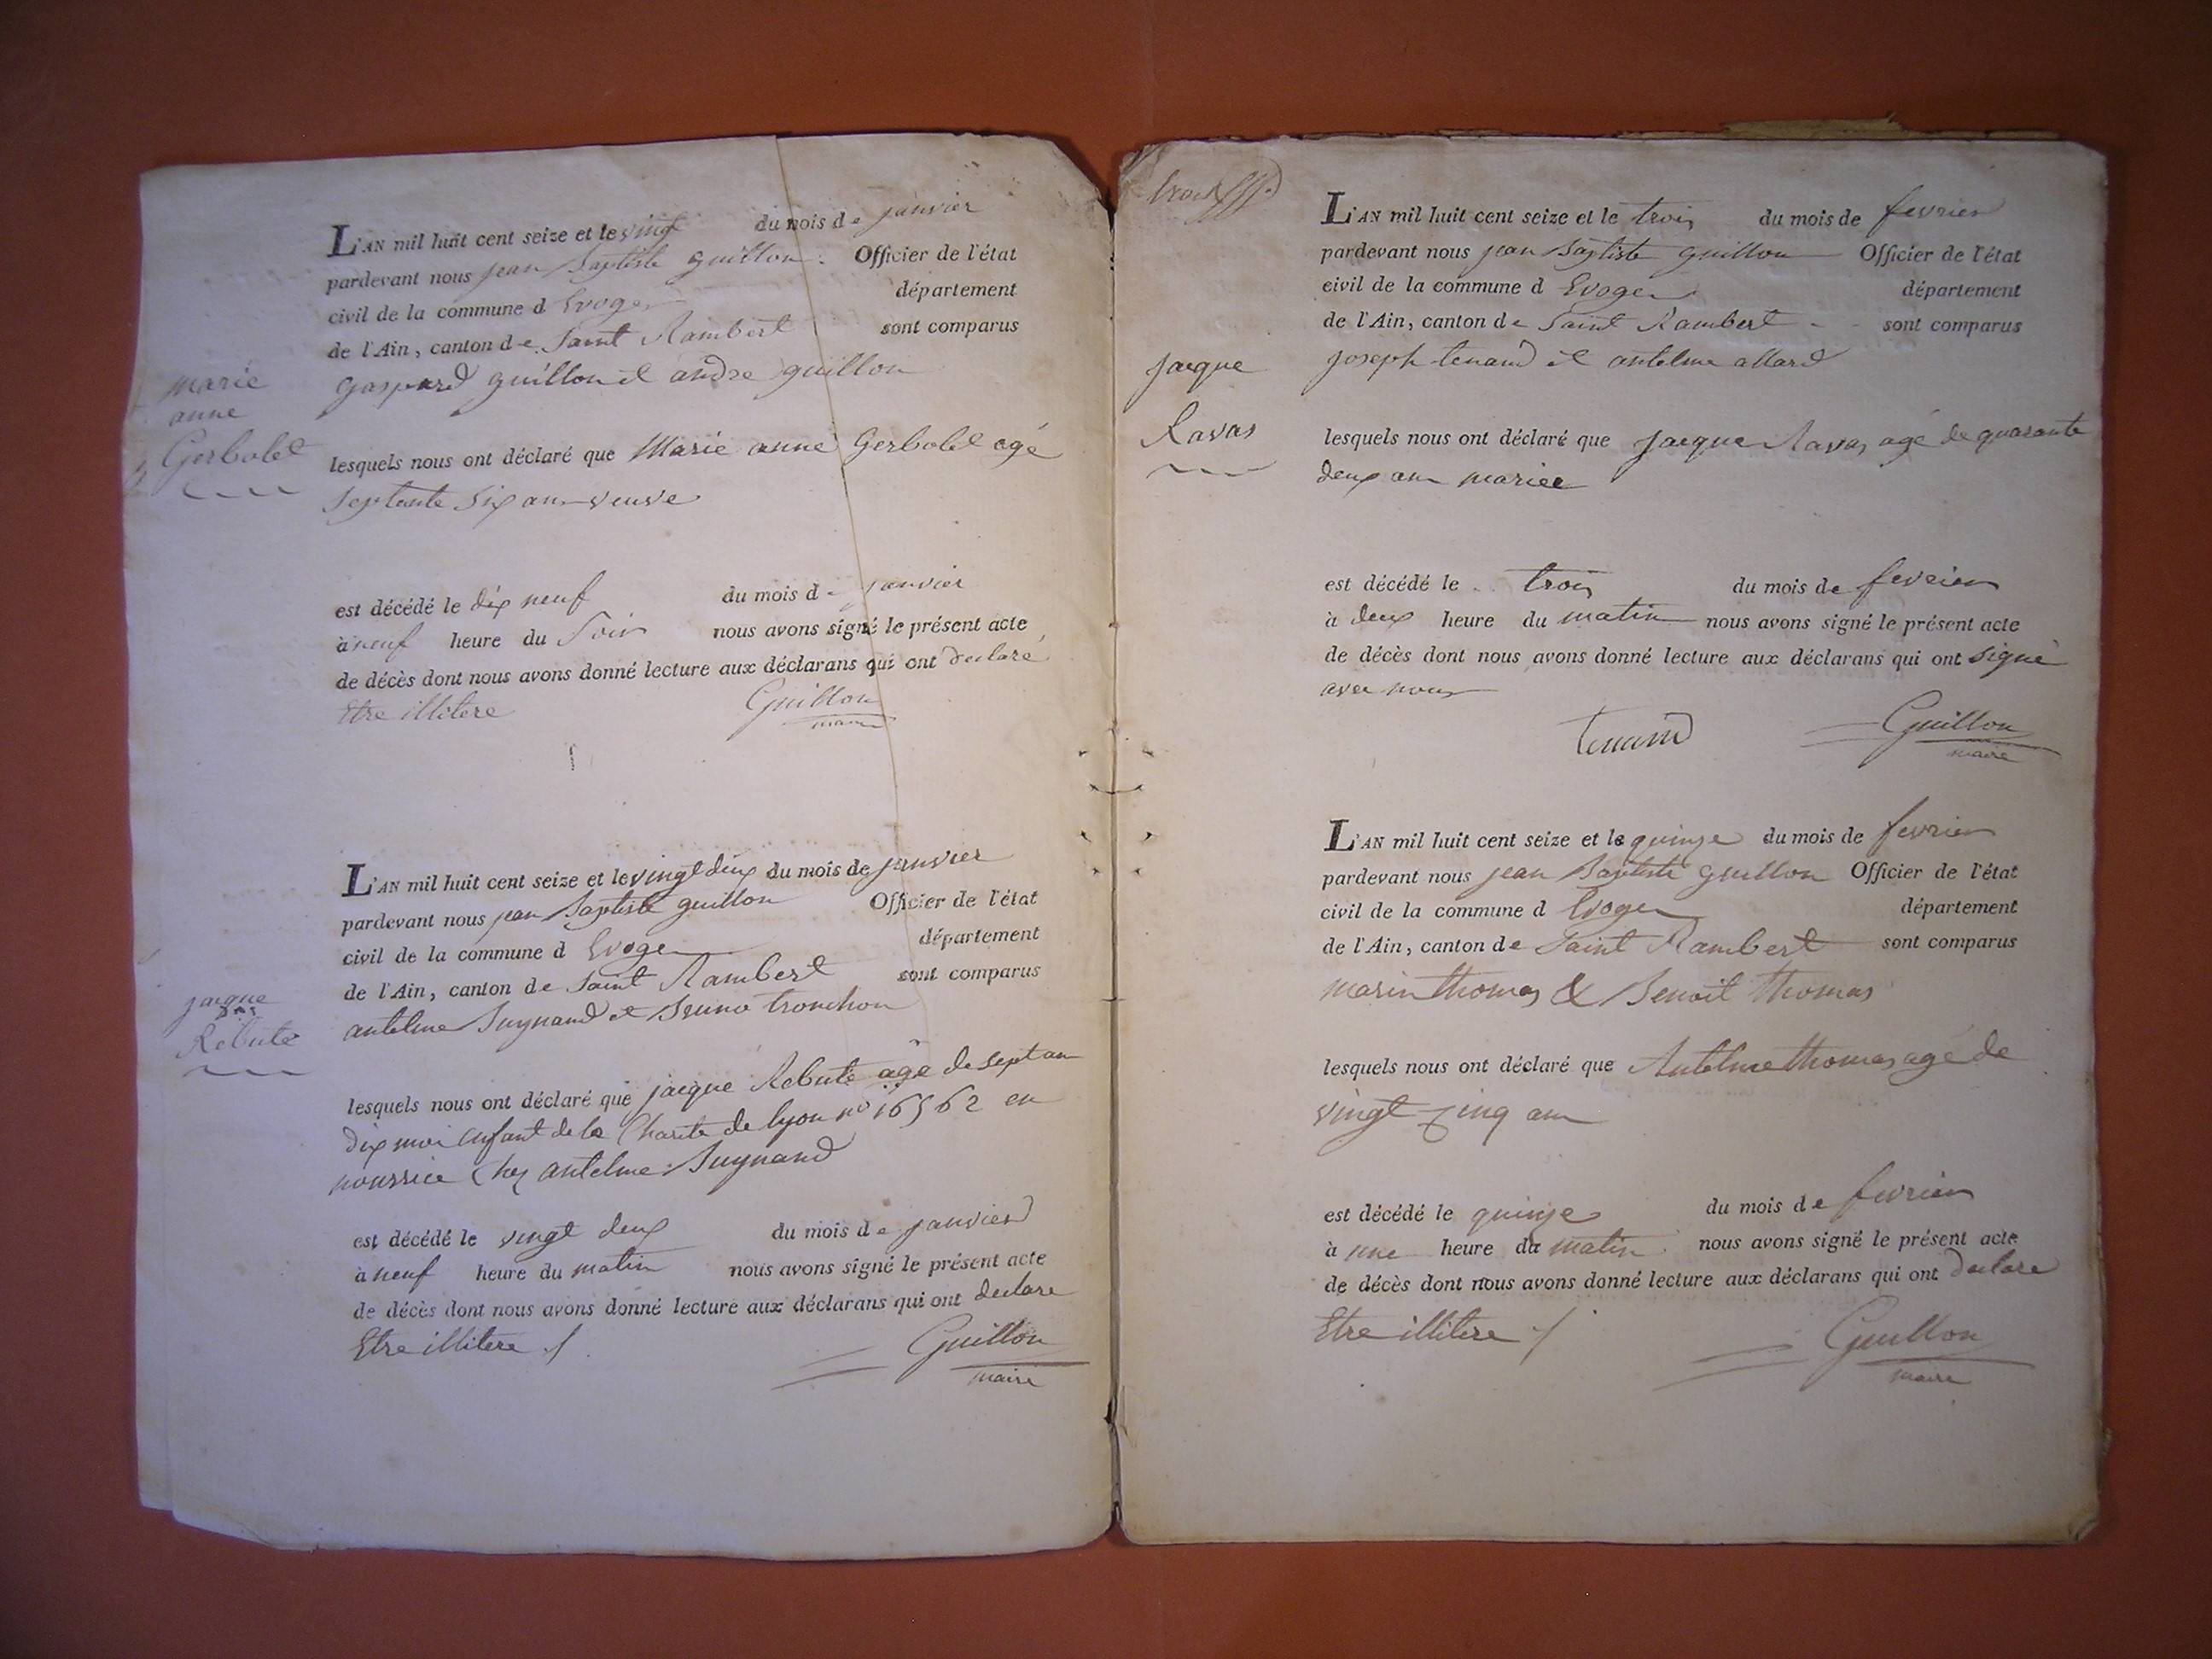 L'AN mil huit cent seize et le vingt du mois de janvier
pardevant nous jean Baptiste guillon Officier de l'état
civil de la commune d Evoges département
de l'Ain, canton de Saint Rambert sont comparus
gaspard guillon et andre guillon
marie
anne
Gerbolet
lesquels nous ont déclaré que Marie anne Gerbolet agé
septante six ans veuve
est décédé le dix neuf du mois de janvier
à neuf heure du Soir nous avons signé le présent acte
de décès dont nous avons donné lecture aux déclarans qui ont declaré
Etre illitere Guillon
maire
L'AN mil huit cent seize et le vingt deux du mois de janvier
pardevant nous jean Baptiste guillon Officier de l'état
civil de la commune d Evoges département
de l'Ain, canton de Saint Rambert sont comparus
antelme Juynand et Bruno tronchon
jacque
Rebute
lesquels nous ont déclaré que jacque Rebute age de sept an
dix moi enfant de la Charite de lyon no 16562 en
nourrice Chez antelme Juynand
est décédé le vingt deux du mois de janvier
à neuf heure du matin nous avons signé le présent acte
de décès dont nous avons donné lecture aux déclarans qui ont declare
Etre illitere
Guillon
maire
L'AN mil huit cent seize et le trois du mois de fevrier
pardevant nous jean Baptiste guillon Officier de l'état
civil de la commune d Evoges département
de l'Ain, canton de Saint Rambert sont comparus
joseph tenand et antelme allard
jacque
Ravas
lesquels nous ont déclaré que jacque Ravas agé de quarante
deux an mariee
est décédé le trois du mois de fevrier
à deux heure du matin nous avons signé le présent acte
de décès dont nous avons donné lecture aux déclarans qui ont signé
avec nous
tenand Guillon
maire
L'AN mil huit cent seize et le quinze du mois de fevrier
pardevant nous jean Baptiste guillon Officier de l'état
civil de la commune d Evoges département
de l'Ain, canton de Saint Rambert sont comparus
marin thomas & Benoit thomas
lesquels nous ont déclaré que Antelme thomas agé de
vingt cinq an
est décédé le quinze du mois de fevrier
à une heure du matin nous avons signé le présent acte
de décès dont nous avons donné lecture aux déclarans qui ont declare
Etre illitere
Guillon
maire